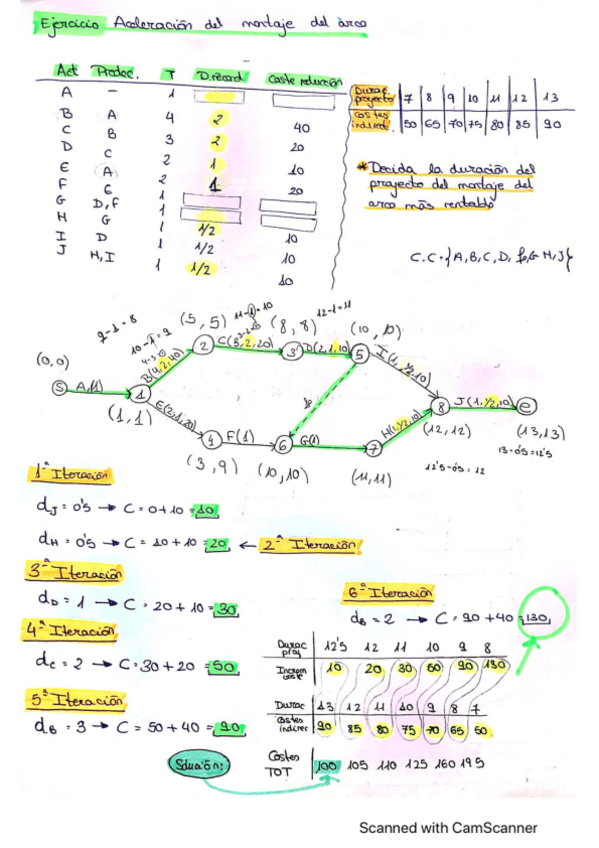 Ejercicio Aceleración del montaje del arco
Act Predec. T D.récord Coste reducción
A - 1
B A 4 2 40
C B 3 2 20
D C 2 1 10
E A 2 1 20
F E 1
G D,F 1
H G 1 1/2 10
I D 1 1/2 10
J H,I 1 1/2 10
Durac. proyecto 7 8 9 10 11 12 13
Costes indirect. 50 65 70 75 80 85 90
* Decida la duración del
proyecto del montaje del
arco más rentable
C.C = {A,B,C,D, f,G H,J}
9-1=8
10-1=9
4-3=10
11-1=10
12-1=11
(0,0)
S
A(1)
1
(1,1)
B(4,2,40)
2
(5,5)
C(3,2,20)
3
(8,8)
D(2,1,10)
5
(10,10)
I(1,1/2,10)
E(2,1,20)
4
(3,9)
F(1)
6
(10,10)
G(1)
7
(11,11)
H(1,1/2,10)
8
(12,12)
J(1,1/2,10)
e
(13,13)
13-0'5=12'5
12'5-0'5=12
1ª Iteración
dJ = 0'5 → C = 0+10 = 10
dH = 0'5 → C = 10+10 = 20 ← 2ª Iteración
3ª Iteración
dD = 1 → C = 20+10 = 30
4ª Iteración
dC = 2 → C = 30+20 = 50
5ª Iteración
dB = 3 → C = 50+40 = 90
6ª Iteración
dB = 2 → C = 90+40 = 130
Durac proy 12'5 12 11 10 9 8
Increm coste 10 20 30 50 90 130
Durac 13 12 11 10 9 8 7
Costes indirec 90 85 80 75 70 65 50
Solución:
Costes TOT 100 105 110 125 160 195
Scanned with CamScanner